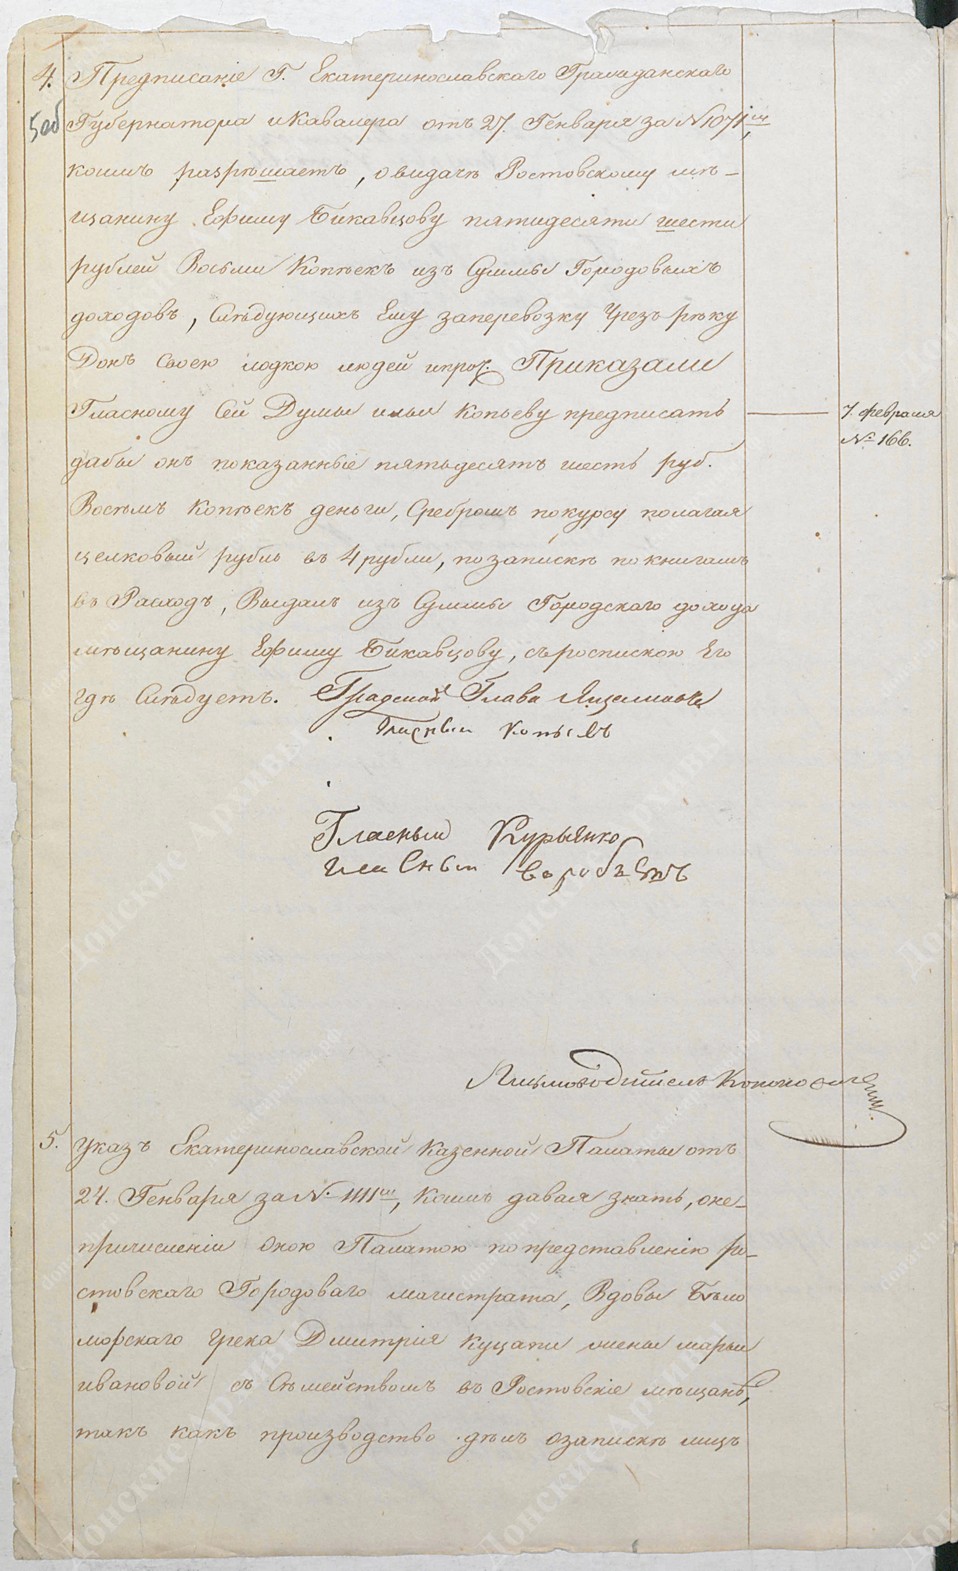 4. Предписаніе Г. Екатеринославскаго Гражданскаго
50об
Губернатора и Кавалера отъ 27. Генваря за №1071м,
коимъ разрѣшаетъ, о выдачѣ Ростовскому мѣ-
щанину Ефиму Бикавцову пятидесяти шести
рублей Восьми Копѣекъ изъ Суммы Городовыхъ
доходовъ, Слѣдующихъ Ему заперевозку Чрезъ рѣку
Донъ Своею лодкою людей ипроч. Приказали
Гласному Сей Думы Копьеву предписать
7. февраля
№ 166.
дабы онъ показанные пятьдесятъ шесть руб.
Восемъ Копѣекъ деньги, Сребромъ покурсу полагая
целковый рубль въ 4 рубли, позапискѣ покнигамъ
въ Расходъ, Выдалъ изъ Суммы Городскаго дохода
мѣщанину Ефиму Бикавцову, съроспискою Его
гдѣ Слѣдуетъ. Градской Глава
Гласный Копьевъ
Гласный Курьянко
Гласный воробьевъ
Письмоводитель
5. Указъ Екатеринославской Казенной Палаты отъ
24. Генваря за №. 1111м, Коимъ давая знать, оне-
причисленіи Оною Палатою попредставленію ро-
стовскаго Городоваго магистрата, Вдовы Бѣло
морскаго грека Дмитрія Куцапи жены марьи
ивановой съ Сѣмействомъ въ Ростовскіе мѣщане,
такъ какъ производство дѣлъ озапискѣ лицъ